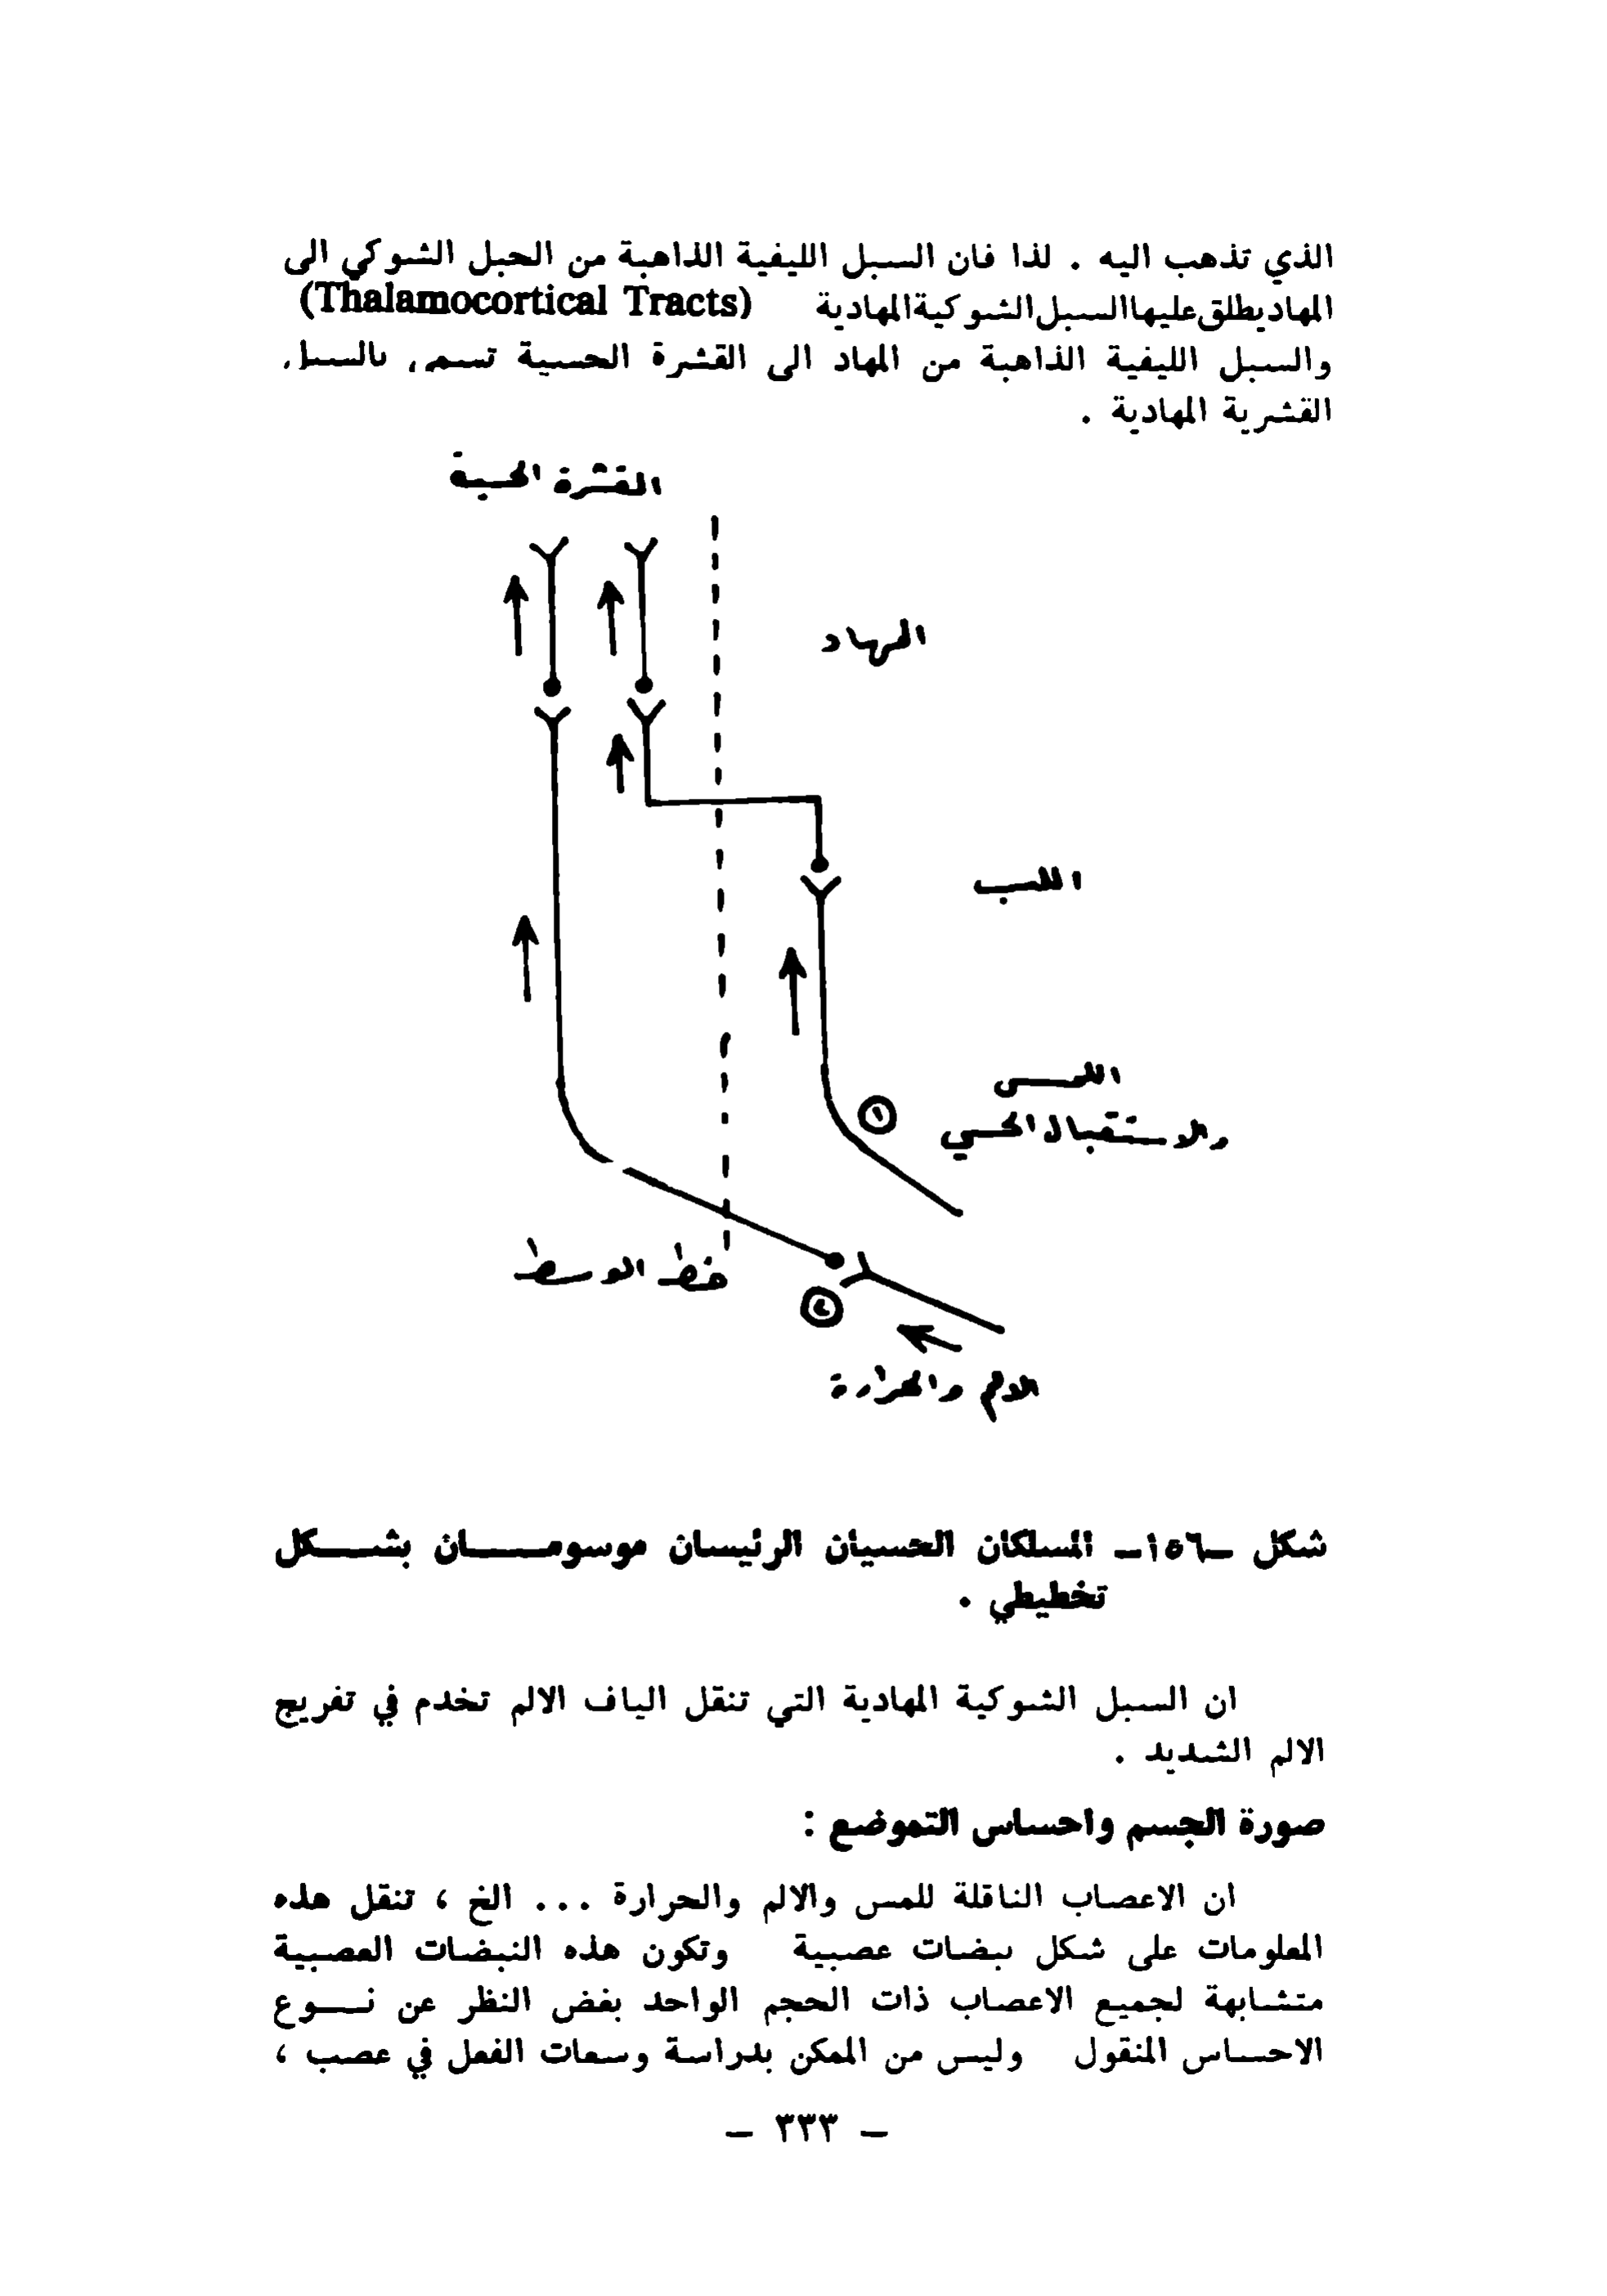 الذي تذهب اليه . لذا فان السبل الليفية الذاهبة من الحبل الشوكي الى
المهاد يطلق عليها السبل الشوكية المهادية (Thalamocortical Tracts)
والسبل الليفية الذاهبة من المهاد الى القشرة الحسية تسمى بالسبل
القشرية المهادية .
القشرة الحسية
المهاد
اللب
اللمس
والاستقبال الحسي
١
خط الوسط
٢
الالم والحرارة
شكل -١٥٦- المسلكان الحسيان الرئيسان موسومـــان بشـــكل
تخطيطي .
ان السبل الشوكية المهادية التي تنقل الياف الالم تخدم في تفريج
الالم الشديد .
صورة الجسم واحساس التموضع :
ان الاعصاب الناقلة للمس والالم والحرارة ... الخ ، تنقل هذه
المعلومات على شكل نبضات عصبية وتكون هذه النبضات العصبية
متشابهة لجميع الاعصاب ذات الحجم الواحد بغض النظر عن نـــوع
الاحساس المنقول وليس من الممكن بدراسة وسعات الفعل في عصب ،
- ٣٣٣ -